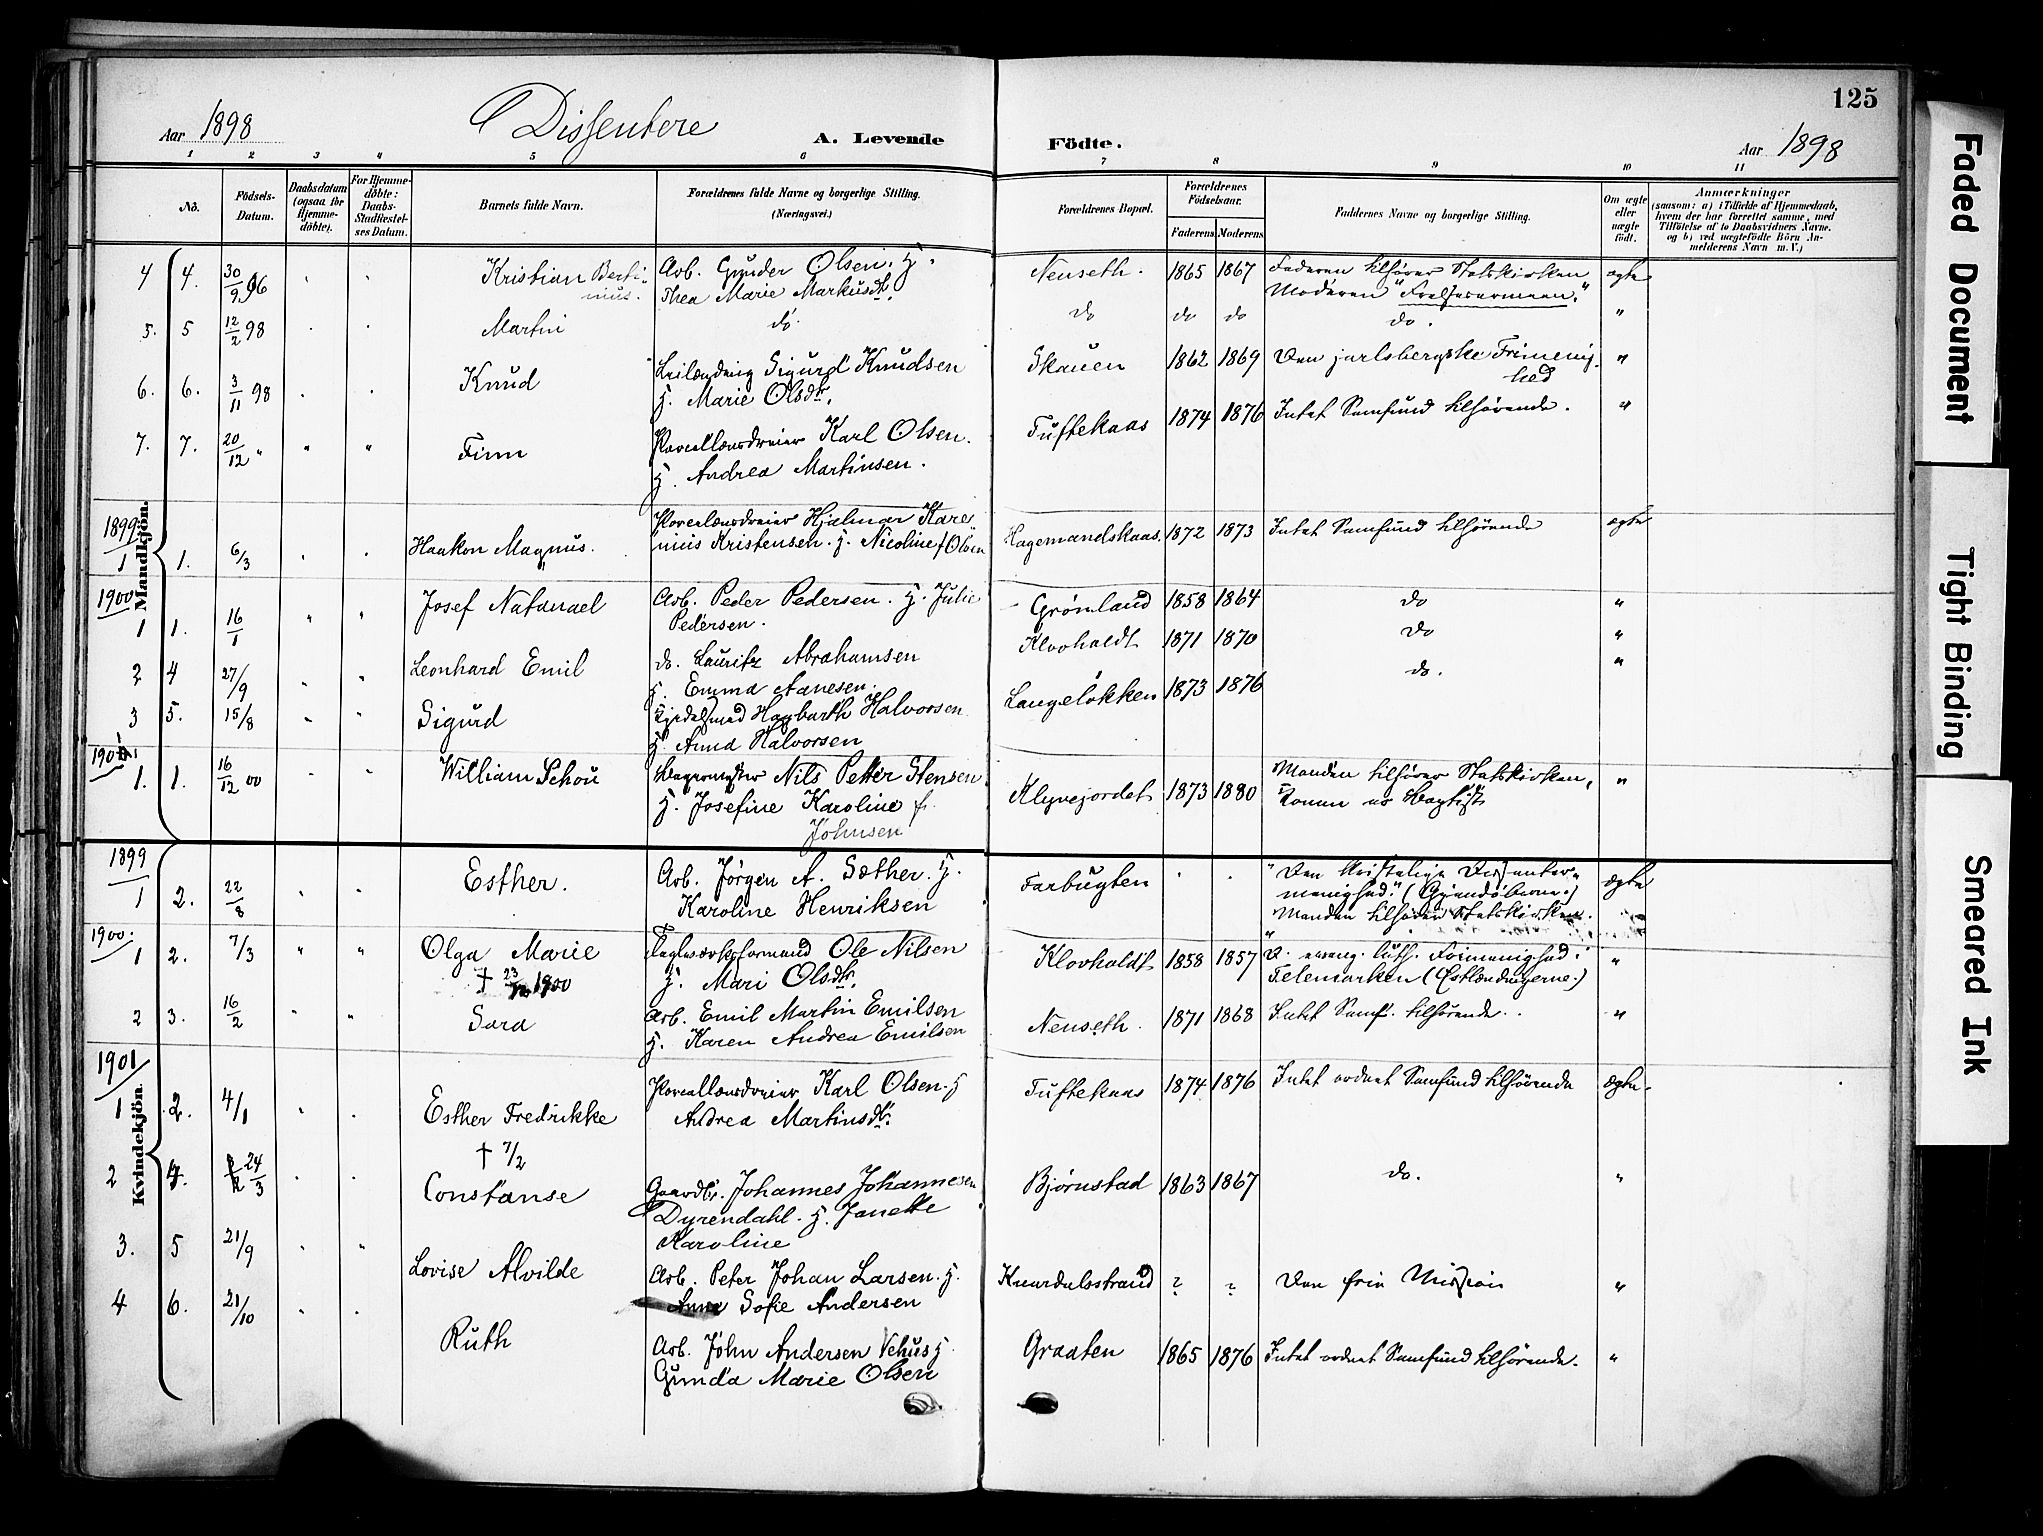 125
Aar 1898
Dissentere
A. Levende
Födte.
Aar 1898
1 2 3 4 5 6 7 8 9 10 11
No.
Födsels-Datum.
Daabsdatum (ogsaa for Hjemme-döbte).
For Hjemme-döbte: Daabs-Stadfæstel-ses Datum.
Barnets fulde Navn.
Forældrenes fulde Navne og borgerlige Stilling.
(Næringsvei.)
Forældrenes Bopæl.
Forældrenes Födselsaar.
Faderens Moderens
Faddernes Navne og borgerlige Stilling.
Om ægte eller uægte födt.
Anmærkninger
(saasom: a) i Tilfælde af Hjemmedaab,
hvem der har forrettet samme, med
Tilföielse af to Daabsvidners Navne.
og b) ved uægtefödte Börn An-
melderens Navn m. V.)
Mandkjön.
4 4. 30/9 96 Kristian Berti-
nius.
Arb. Gunder Olsen. H.
Thea Marie Markusdtr.
Neuseth. 1865 1867 Faderen tilhører Statskirken
Moderen "Frelsesarmeen." ægte
5. 5 12/2 98 Martin do do do do do. "
6. 6. 3/11 98 Knud
Leilænding Sigurd Knudsen
H. Marie Olsdtr.
Skauen 1862 1869 Den jarlsbergske Frimenig-
hed "
7. 7. 20/12 " " " Finn
Porcellænsdreier Karl Olsen.
H. Andrea Martinsen.
Tuftekaas 1874 1876 Intet Samfund tilhørende. "
1899
1 1. 6/3 Haakon Magnus.
Porcelænsdreier Hjalmar Kare-
nius Kristensen. H. Nicoline f Olsen
Hagemandskaas. 1872 1873 Intet Samfund tilhørende ægte
1900
1 1. 16/1 " " Josef Natanael
Arb. Peder Pedersen. H. Julie
Pedersen.
Grønland 1858 1864 do "
2 4 27/9 Leonhard Emil
do. Lauritz Abrahamsen
H. Emma Aanesen.
Klovholdt 1871 1870 do "
3 5. 15/8 Sigurd
Hagbarth Halvorsen
H. Anna Halvorsen
Langeløkken 1873 1876 do. "
1901
1. 1. 16/12 00 William Schou
Bagermester Nils Petter Stensen.
H. Josefine Karoline f.
Johnsen
Klyvejordet 1873 1880 Manden tilhører Statskirken,
Konen er Baptist "
Kvindekjön.
1899
1 2. 22/8 Esther.
Arb. Jørgen A. Sæther. H.
Karoline Henriksen
Farbugten "Den kristelige Dissenter-
menighed." (
Manden tilhører Statskirken. ægte
1900.
1 2. 7/3 " " Olga Marie
† 23/12 1900
Teglverksformand Ole Nilsen
H. Mari Olsdtr.
Klovholdt 1858 1857 D. evang. luth. Frimenighed i
Telemarken (Østlændingerne.) "
2 3. 16/2 " " Sara
Arb. Emil Martin Emilsen
H. Karen Andrea Emilsen
Neuseth. 1871 1868 Intet Samf. tilhørende. "
1901
1 2. 4/1 Esther Fredrikke
† 7/2
Porcellænsdreier Karl Olsen. H
Andrea Martinsdtr.
Tuftekaas 1874 1876 Intet ordnet Samfund tilhørende ægte.
2 4. 24/3 Constanse
Gaardbr. Johannes Johannesen
Dyrendahl. H. Janette
Karoline
Bjørnstad 1863 1867 do. "
3. 5 21/9 Lovise Alvilde
Arb. Peter Johan Larsen. H.
Anne Sofie Andersen
Knardalsstrand ? ? Den frie Mission "
4 6. 21/10 Ruth
Arb. John Andersen Vehus H.
Gunda Marie Olsen
Graaten 1865 1876 Intet ordnet Samfund tilhørende. "
Faded Document
Tight Binding
Smeared Ink